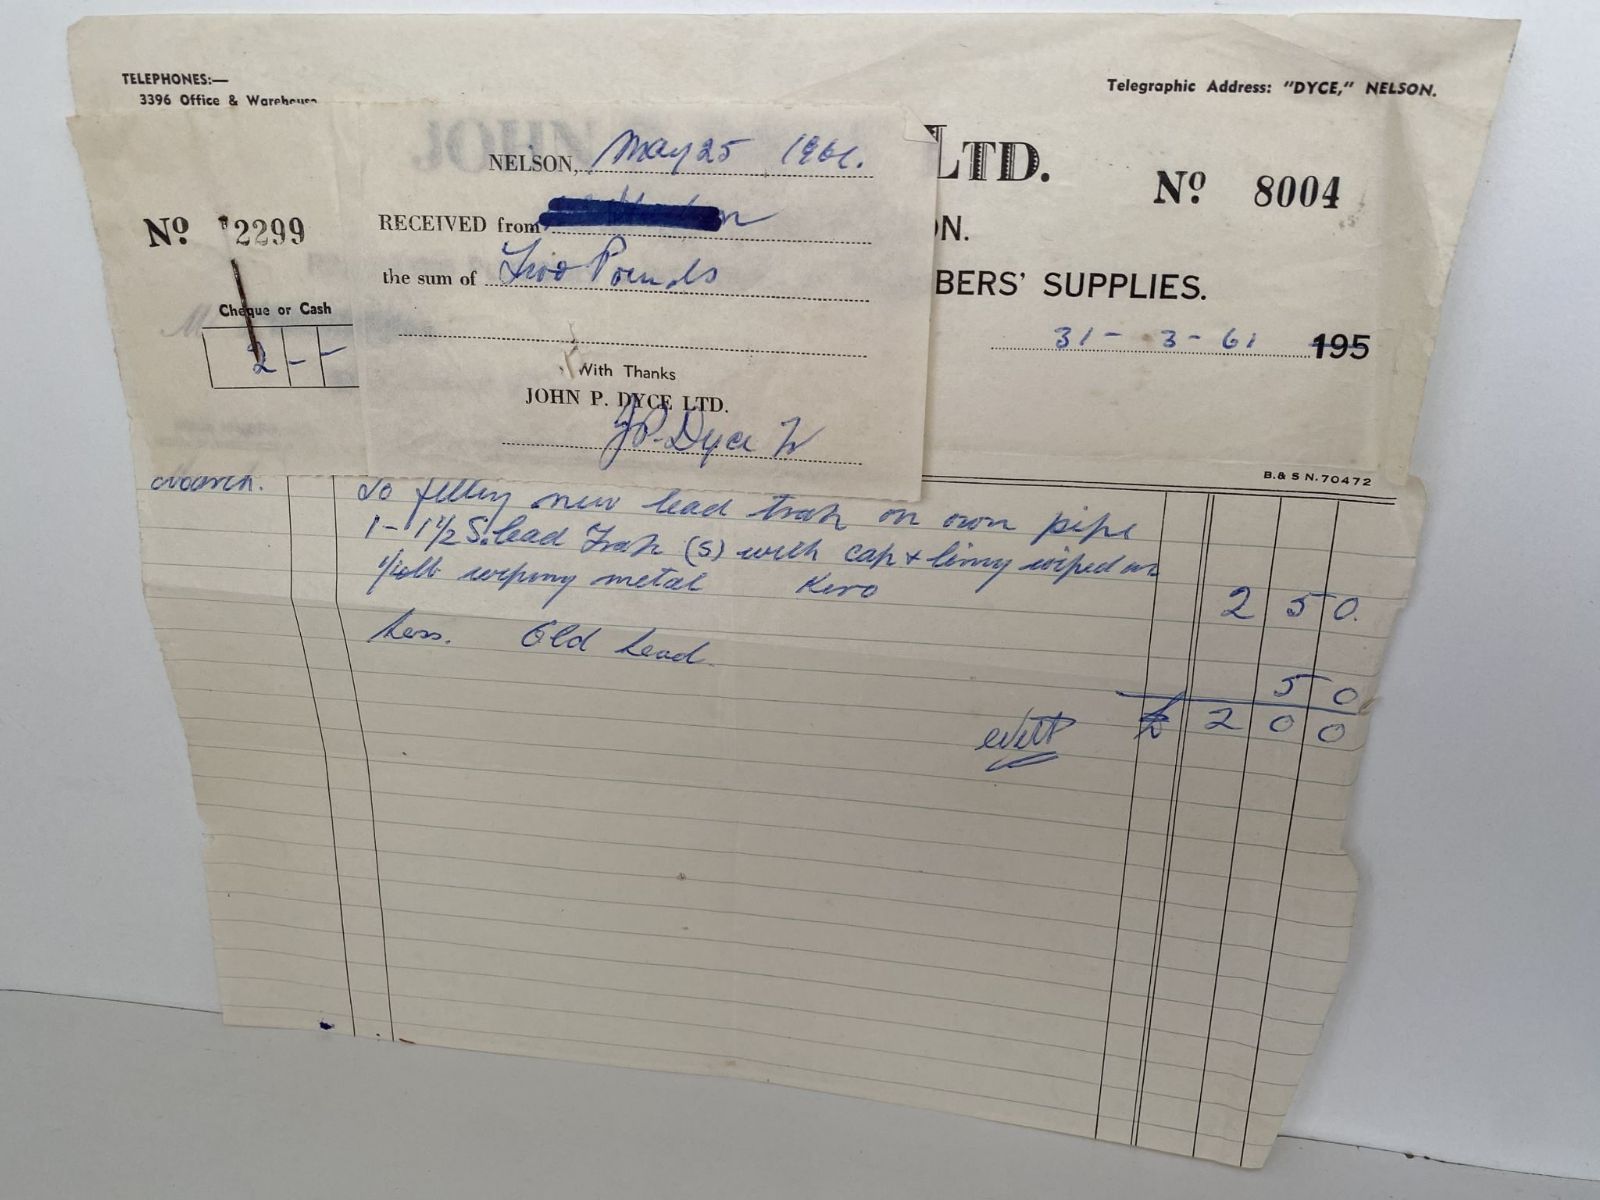 TELEPHONES:—
3396 Office & Warehouse
Telegraphic Address: "DYCE," NELSON.
LTD.
Nº 8004
ON.
BERS' SUPPLIES.
31 - 3 - 61 195
B.& S N.70472
Nº 2299
Cheque or Cash
2 - -
NELSON, May 25 1961.
RECEIVED from
the sum of Two Pounds
With Thanks
JOHN P. DYCE LTD.
J P. Dyce
March. To fitting new lead trap on own pipe
1 - 1 1/2 S. lead Trap (S) with cap & lining wiped on
wiping metal Kero 2 5 0.
Less. Old Lead 5 0
£ 2 0 0